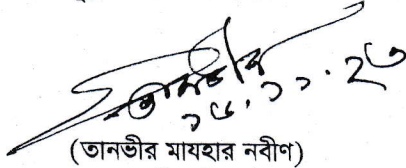 তানভীর
১৬.১১.২৩
(তানভীর মাযহার নবীণ)